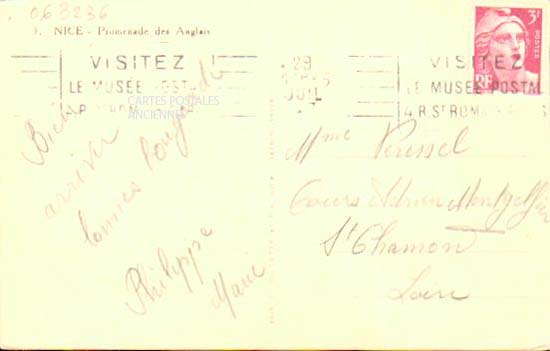 063236
3. NICE - Promenade des Anglais
VISITEZ
LE MUSÉE POSTAL
29
JUIL
VISITEZ
LE MUSÉE POSTAL
4 R. ST ROMAIN
3F
POSTES
RF
CARTES POSTALES
ANCIENNES
Bien
arrivée
Philippe
Marie
Mme
Cours Adrien Montgolfier
St Chamond
Loire